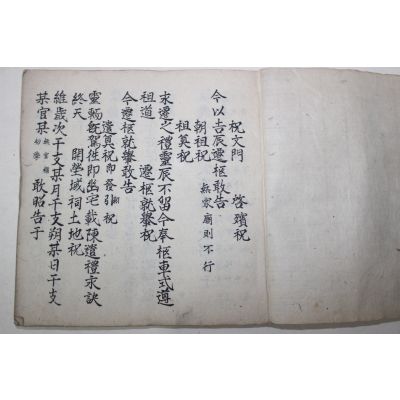 祝文門　　啓殯祝
今以吉辰遷柩敢告
朝祖祝　無家廟則不行
祖奠祝
永遷之禮靈辰不留今奉柩車式遵
祖道　　遷柩就轝祝
今遷柩就轝敢告
遣奠祝 即發引祝
靈輀旣駕徃即幽宅載陳遣禮永訣
終天　開塋域祠土地祝
維歲次干支某月干支朔某日干支
某官某 敢昭告于